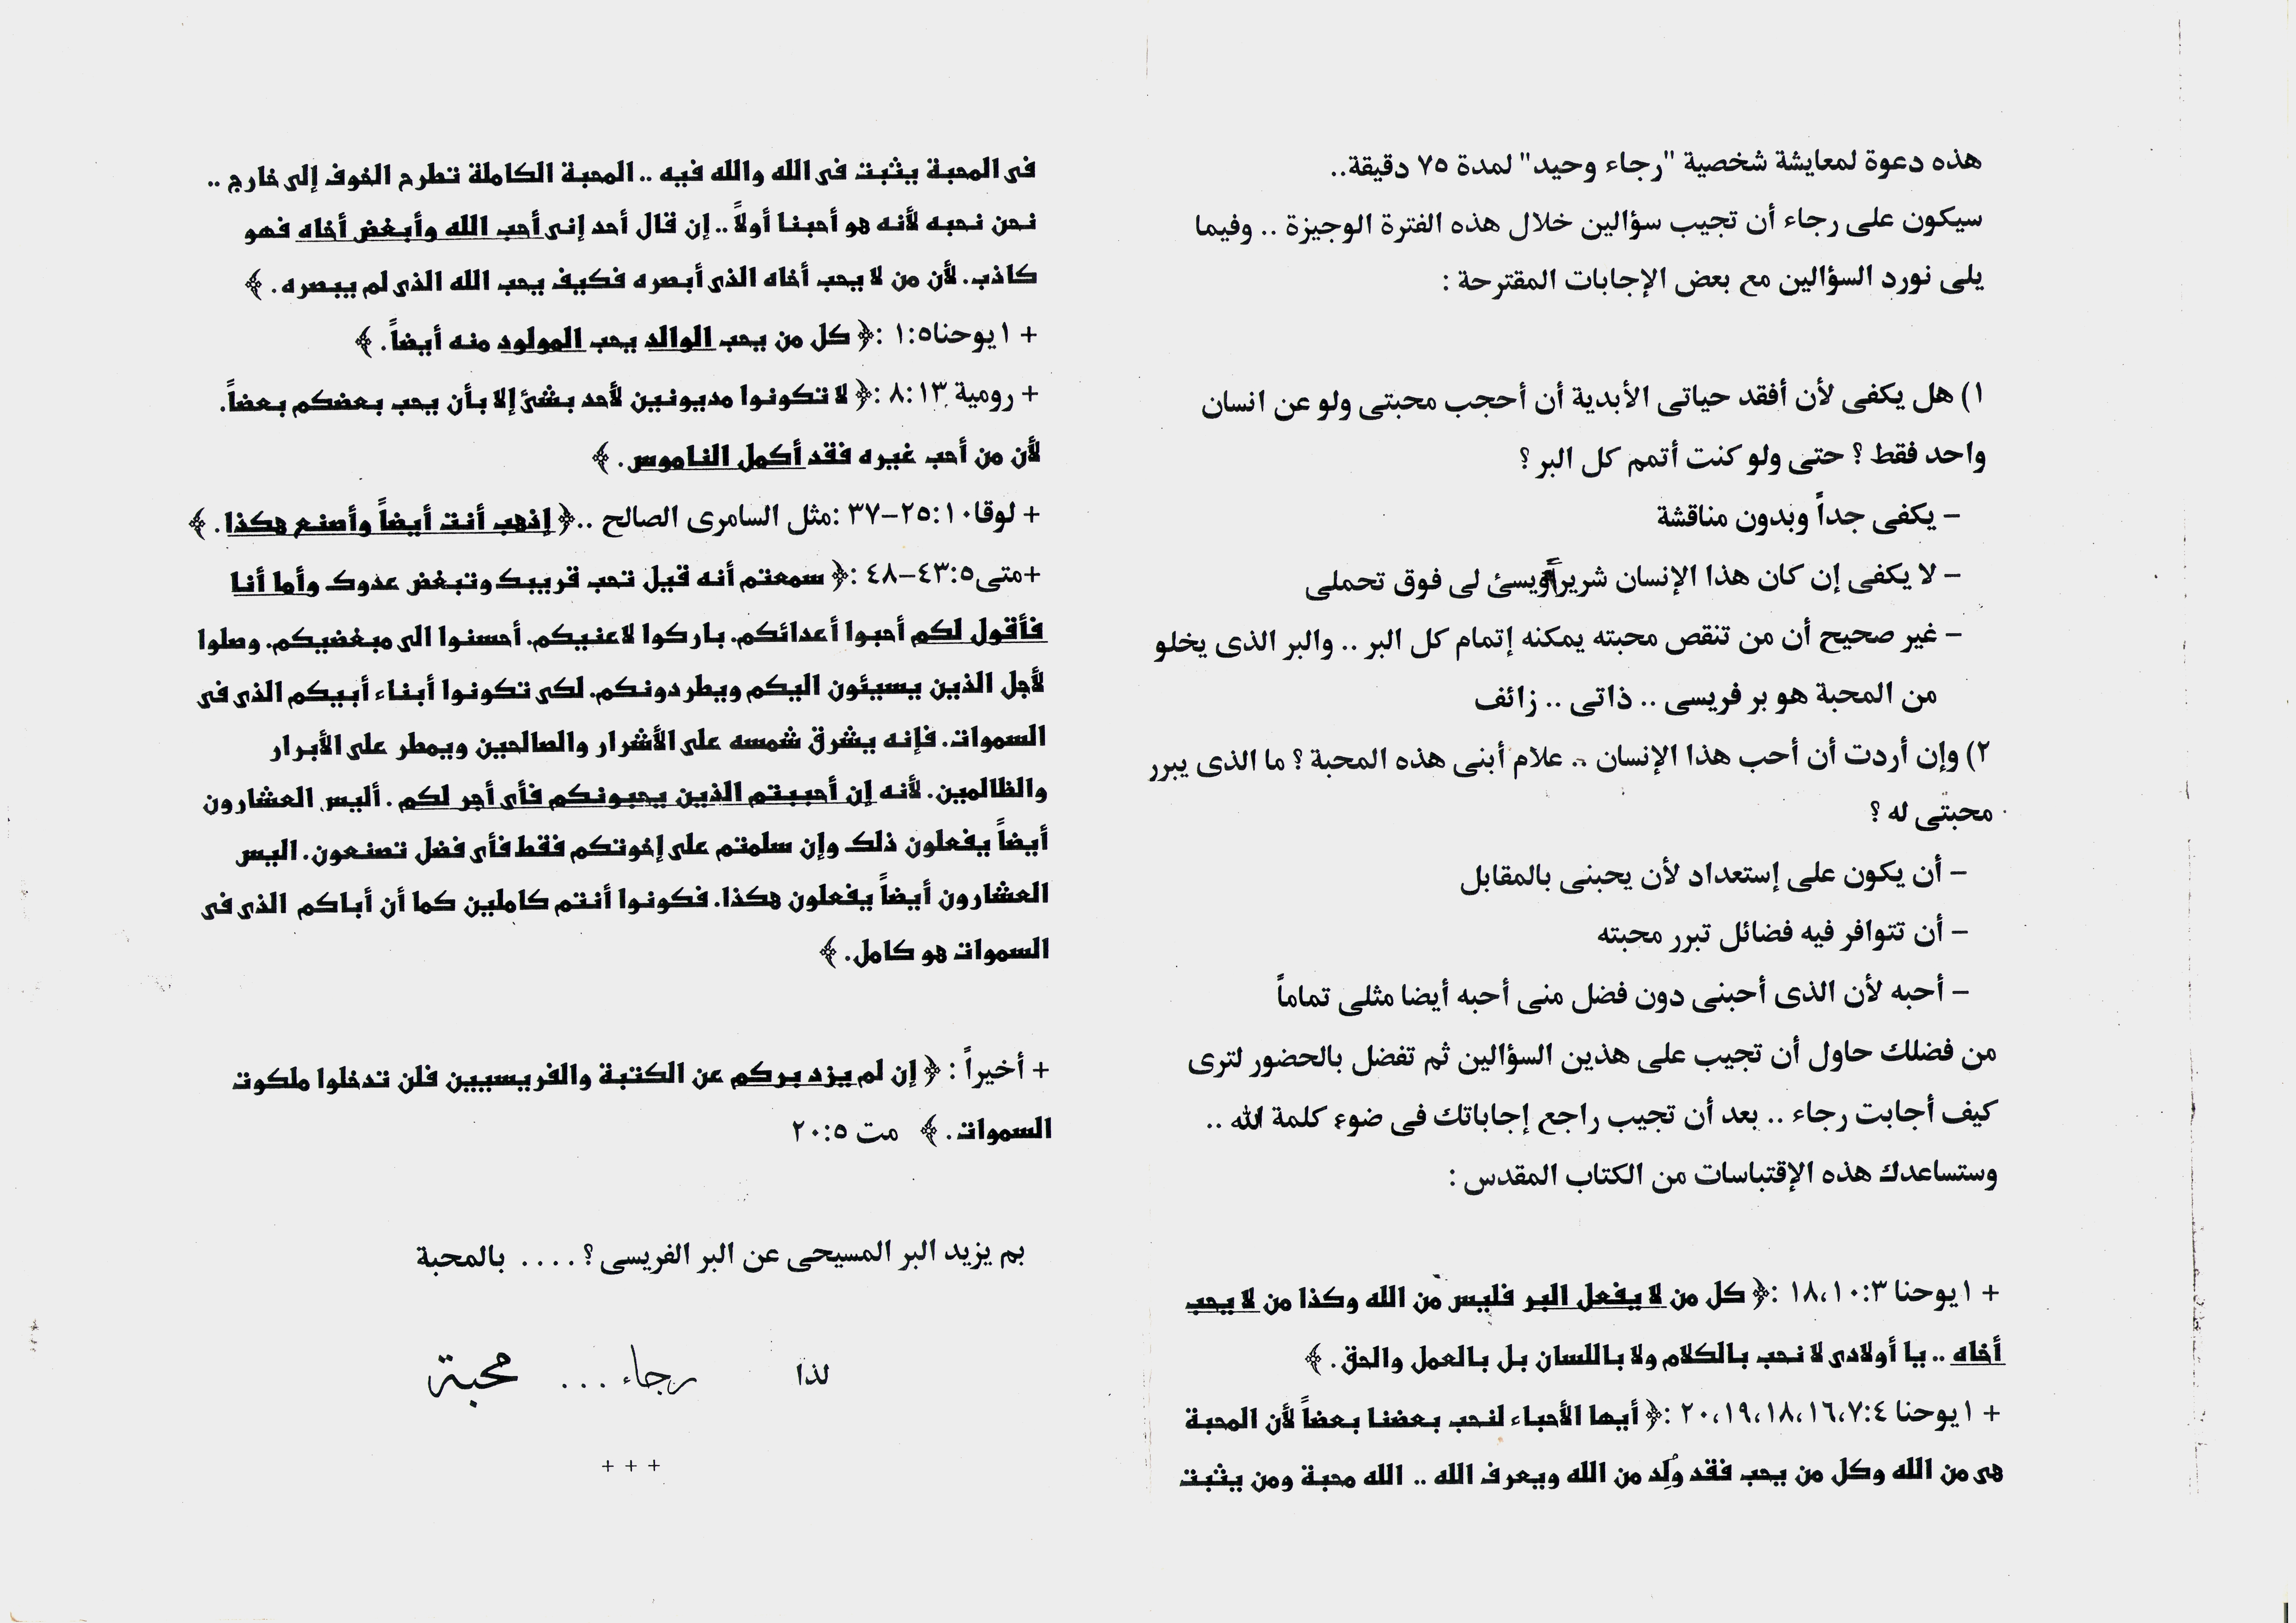 هذه دعوة لمعايشة شخصية "رجاء وحيد" لمدة ٧٥ دقيقة..
سيكون على رجاء أن تجيب سؤالين خلال هذه الفترة الوجيزة .. وفيما
يلى نورد السؤالين مع بعض الإجابات المقترحة :
١) هل يكفى لأن أفقد حياتى الأبدية أن أحجب محبتى ولو عن انسان
واحد فقط ؟ حتى ولو كنت أتمم كل البر ؟
– يكفى جداً وبدون مناقشة
– لا يكفى إن كان هذا الإنسان شريراً ويسئ لى فوق تحملى
– غير صحيح أن من تنقص محبته يمكنه إتمام كل البر .. والبر الذى يخلو
من المحبة هو بر فريسى .. ذاتى .. زائف
٢) وإن أردت أن أحب هذا الإنسان .. علام أبنى هذه المحبة ؟ ما الذى يبرر
محبتى له ؟
– أن يكون على إستعداد لأن يحبنى بالمقابل
– أن تتوافر فيه فضائل تبرر محبته
– أحبه لأن الذى أحبنى دون فضل منى أحبه أيضا مثلى تماماً
من فضلك حاول أن تجيب على هذين السؤالين ثم تفضل بالحضور لترى
كيف أجابت رجاء .. بعد أن تجيب راجع إجاباتك فى ضوء كلمة الله ..
وستساعدك هذه الإقتباسات من الكتاب المقدس :
+ ١يوحنا ١٨،١٠:٣ :﴿ كل من لا يفعل البر فليس من الله وكذا من لا يحب
أخاه .. يا أولادى لا نحب بالكلام ولا باللسان بل بالعمل والحق . ﴾
+ ١يوحنا ٢٠،١٩،١٨،١٦،٧:٤ :﴿ أيها الأحباء لنحب بعضنا بعضاً لأن المحبة
هى من الله وكل من يحب فقد وُلِد من الله ويعرف الله .. الله محبة ومن يثبت
فى المحبة يثبت فى الله والله فيه .. المحبة الكاملة تطرح الخوف إلى خارج ..
نحن نحبه لأنه هو أحبنا أولاً .. إن قال أحد إنى أحب الله وأبغض أخاه فهو
كاذب. لأن من لا يحب أخاه الذى أبصره فكيف يحب الله الذى لم يبصره . ﴾
+ ١يوحنا١:٥ :﴿ كل من يحب الوالد يحب المولود منه أيضاً . ﴾
+ رومية ٨:١٣ :﴿ لا تكونوا مديونين لأحد بشئ إلا بأن يحب بعضكم بعضاً.
لأن من أحب غيره فقد أكمل الناموس . ﴾
+ لوقا٢٥:١٠–٣٧ :مثل السامرى الصالح ..﴿ إذهب أنت أيضاً وأصنع هكذا . ﴾
+متى٤٣:٥–٤٨ :﴿ سمعتم أنه قيل تحب قريبك وتبغض عدوك وأما أنا
فأقول لكم أحبوا أعدائكم. باركوا لاعنيكم. أحسنوا الى مبغضيكم. وصلوا
لأجل الذين يسيئون اليكم ويطردونكم. لكى تكونوا أبناء أبيكم الذى فى
السموات. فإنه يشرق شمسه على الأشرار والصالحين ويمطر على الأبرار
والظالمين. لأنه إن أحببتم الذين يحبونكم فأى أجر لكم . أليس العشارون
أيضاً يفعلون ذلك وإن سلمتم على إخوتكم فقط فأى فضل تصنعون. اليس
العشارون أيضاً يفعلون هكذا. فكونوا أنتم كاملين كما أن أباكم الذى فى
السموات هو كامل. ﴾
+ أخيراً : ﴿ إن لم يزد بركم عن الكتبة والفريسيين فلن تدخلوا ملكوت
السموات . ﴾ مت ٢٠:٥
بم يزيد البر المسيحى عن البر الفريسى ؟ .... بالمحبة
لذا رجاء ... محبة
+ + +